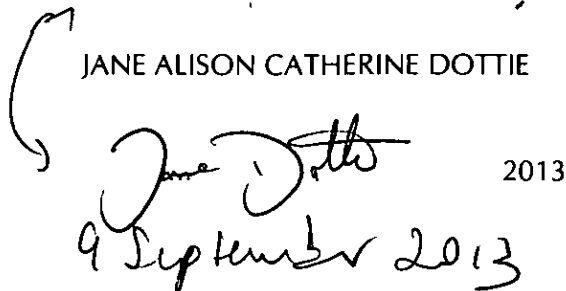 JANE ALISON CATHERINE DOTTIE
Jane Dottie
2013
9 September 2013